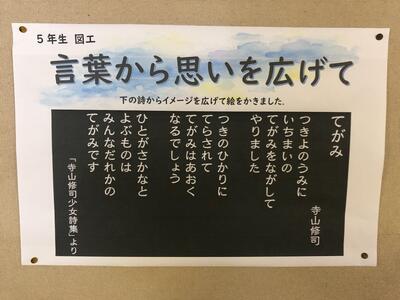 5年生 図工
言葉から思いを広げて
下の詩からイメージを広げて絵をかきました。
てがみ
寺山修司
つきよのうみに
いちまいの
てがみをながして
やりました
つきのひかりに
てらされて
てがみはあおく
なるでしょう
ひとがさかなと
よぶものは
みんなだれかの
てがみです
「寺山修司少女詩集」より